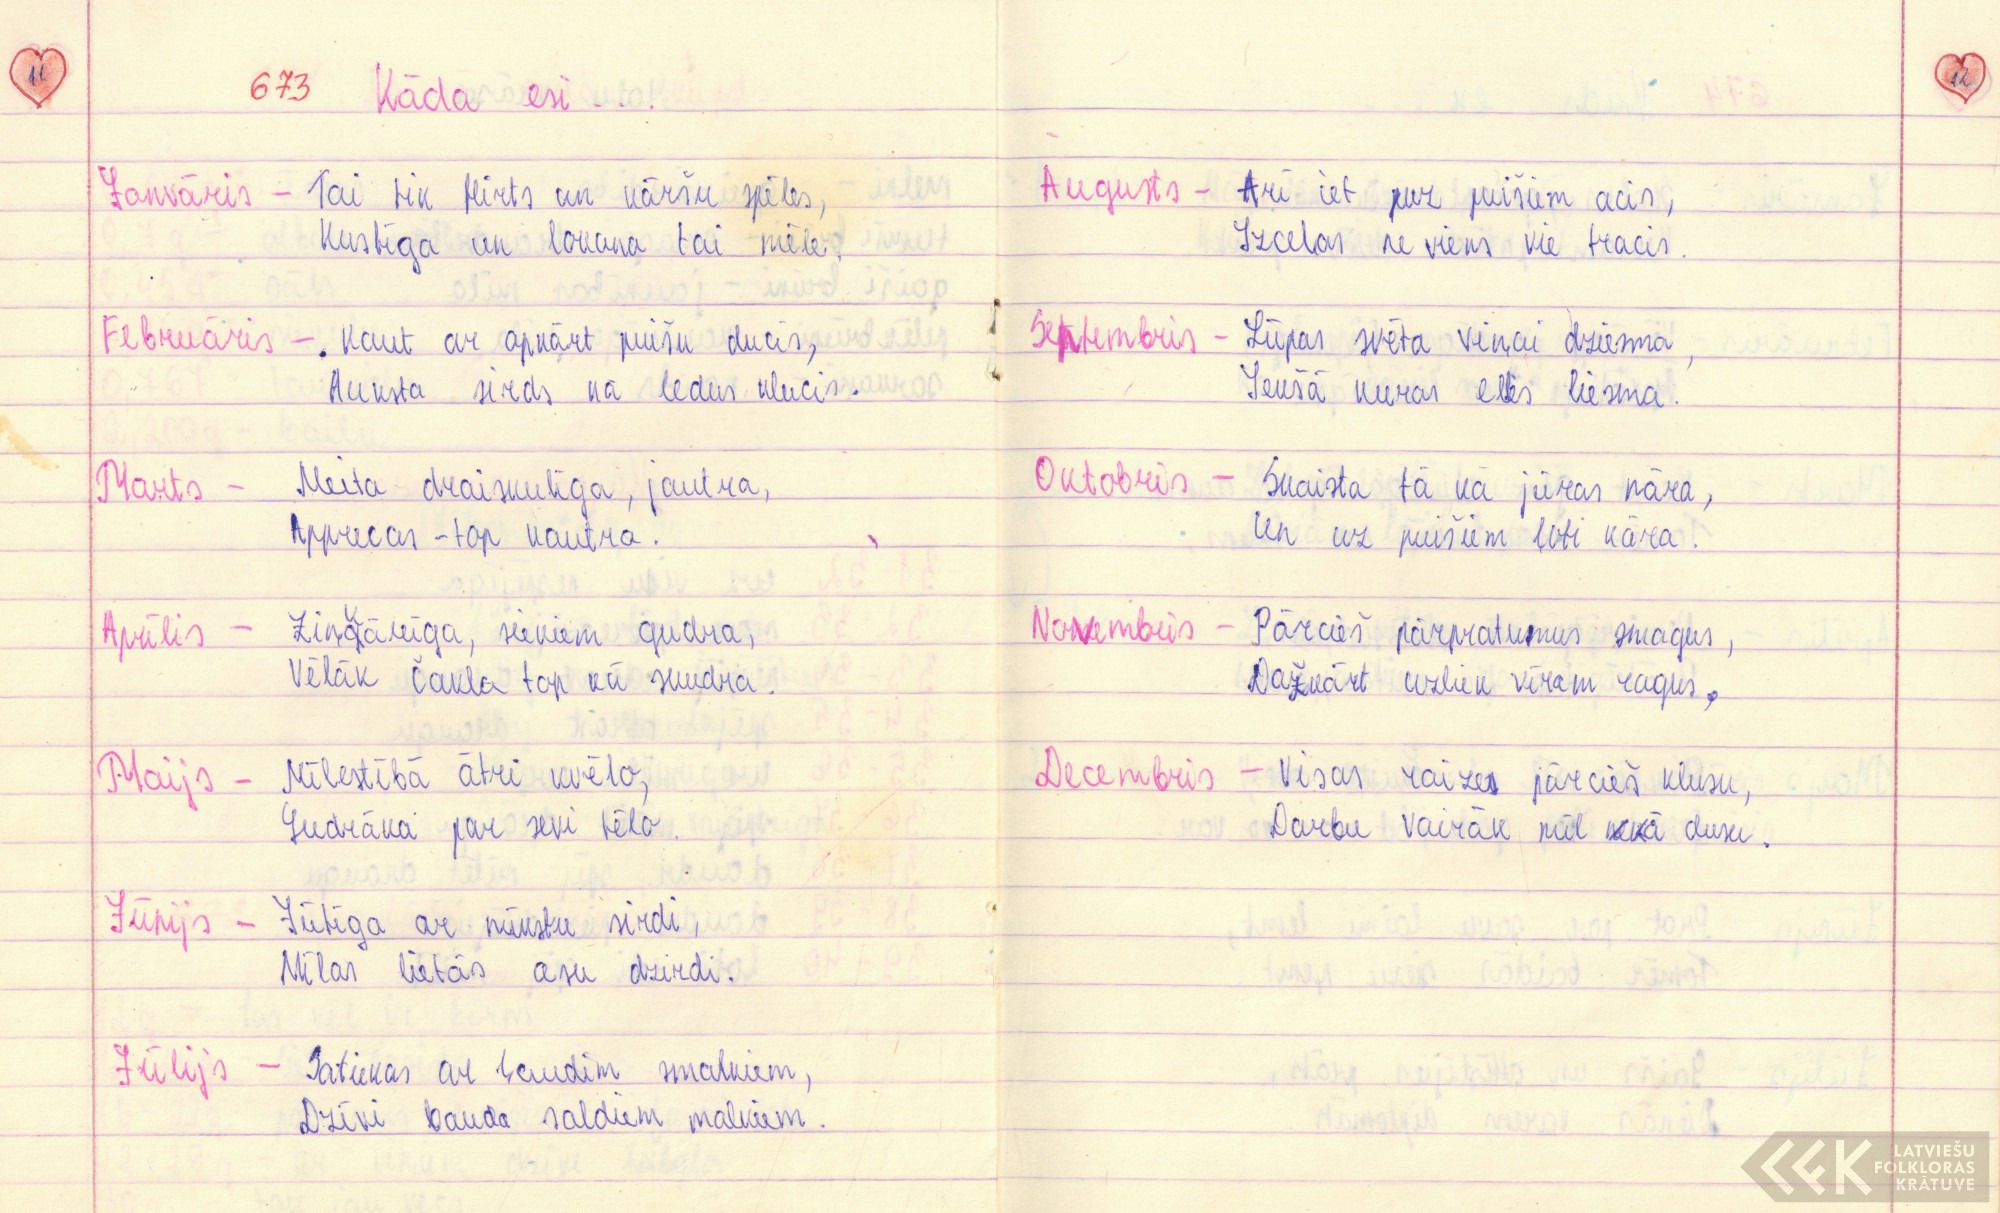 11
673 Kāda esi . . .
Janvāris – Tai tik flirts un kāršu spēles,
Kustīga un lokana tai mēle.
Februāris – Kaut ar apkārt puišu ducis,
Auksta sirds kā ledus klucis.
Marts – Meita draiskulīga, jautra,
Apprecas – top kautra.
Aprīlis – Ziņkārīga, niekiem gudra,
Vēlāk čakla top kā skudra.
Maijs – Mīlestībā ātri kvēlo,
Gudrāka par sevi tēlo.
Jūnijs – Jūtīga ar mīkstu sirdi,
Mīlas lietās asu dzirdi.
Jūlijs – Satiekas ar ļaudīm smalkiem,
Dzīvi bauda saldiem malkiem.
12
Augusts – Arī iet par puišiem acis,
Izcelas ne viens vie tracis.
Septembris – Lūpas svēta viņai dziesma,
Iekšā kuras elles liesma.
Oktobris – Skaista tā kā jūras nāra,
Un uz puišiem ļoti kāra.
Novembris – Pārcieš pārpratumus smagus,
Dažkārt uzliek vīram ragus.
Decembris – Visas raizes pārcieš klusu,
Darbu vairāk mīl kā dusu.
LATVIEŠU
FOLKLORAS
KRĀTUVE